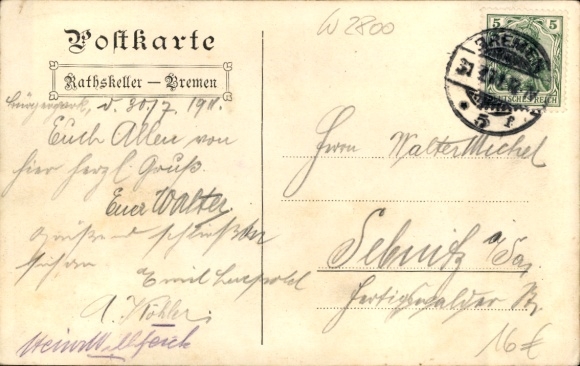 W 2800
Postkarte
Rathskeller – Bremen
Bürgerpark, d. 30/7 1911.
Euch Allen von
hier herzl. Gruß.
Euer Walter.
schließen
sich an
Emil Leupold
A. Köhler.
5
BREMEN
DEUTSCHES REICH
* 5 f
Herrn Walter Michel
Sebnitz i/Sa.
Fertigswalder Str.
16€